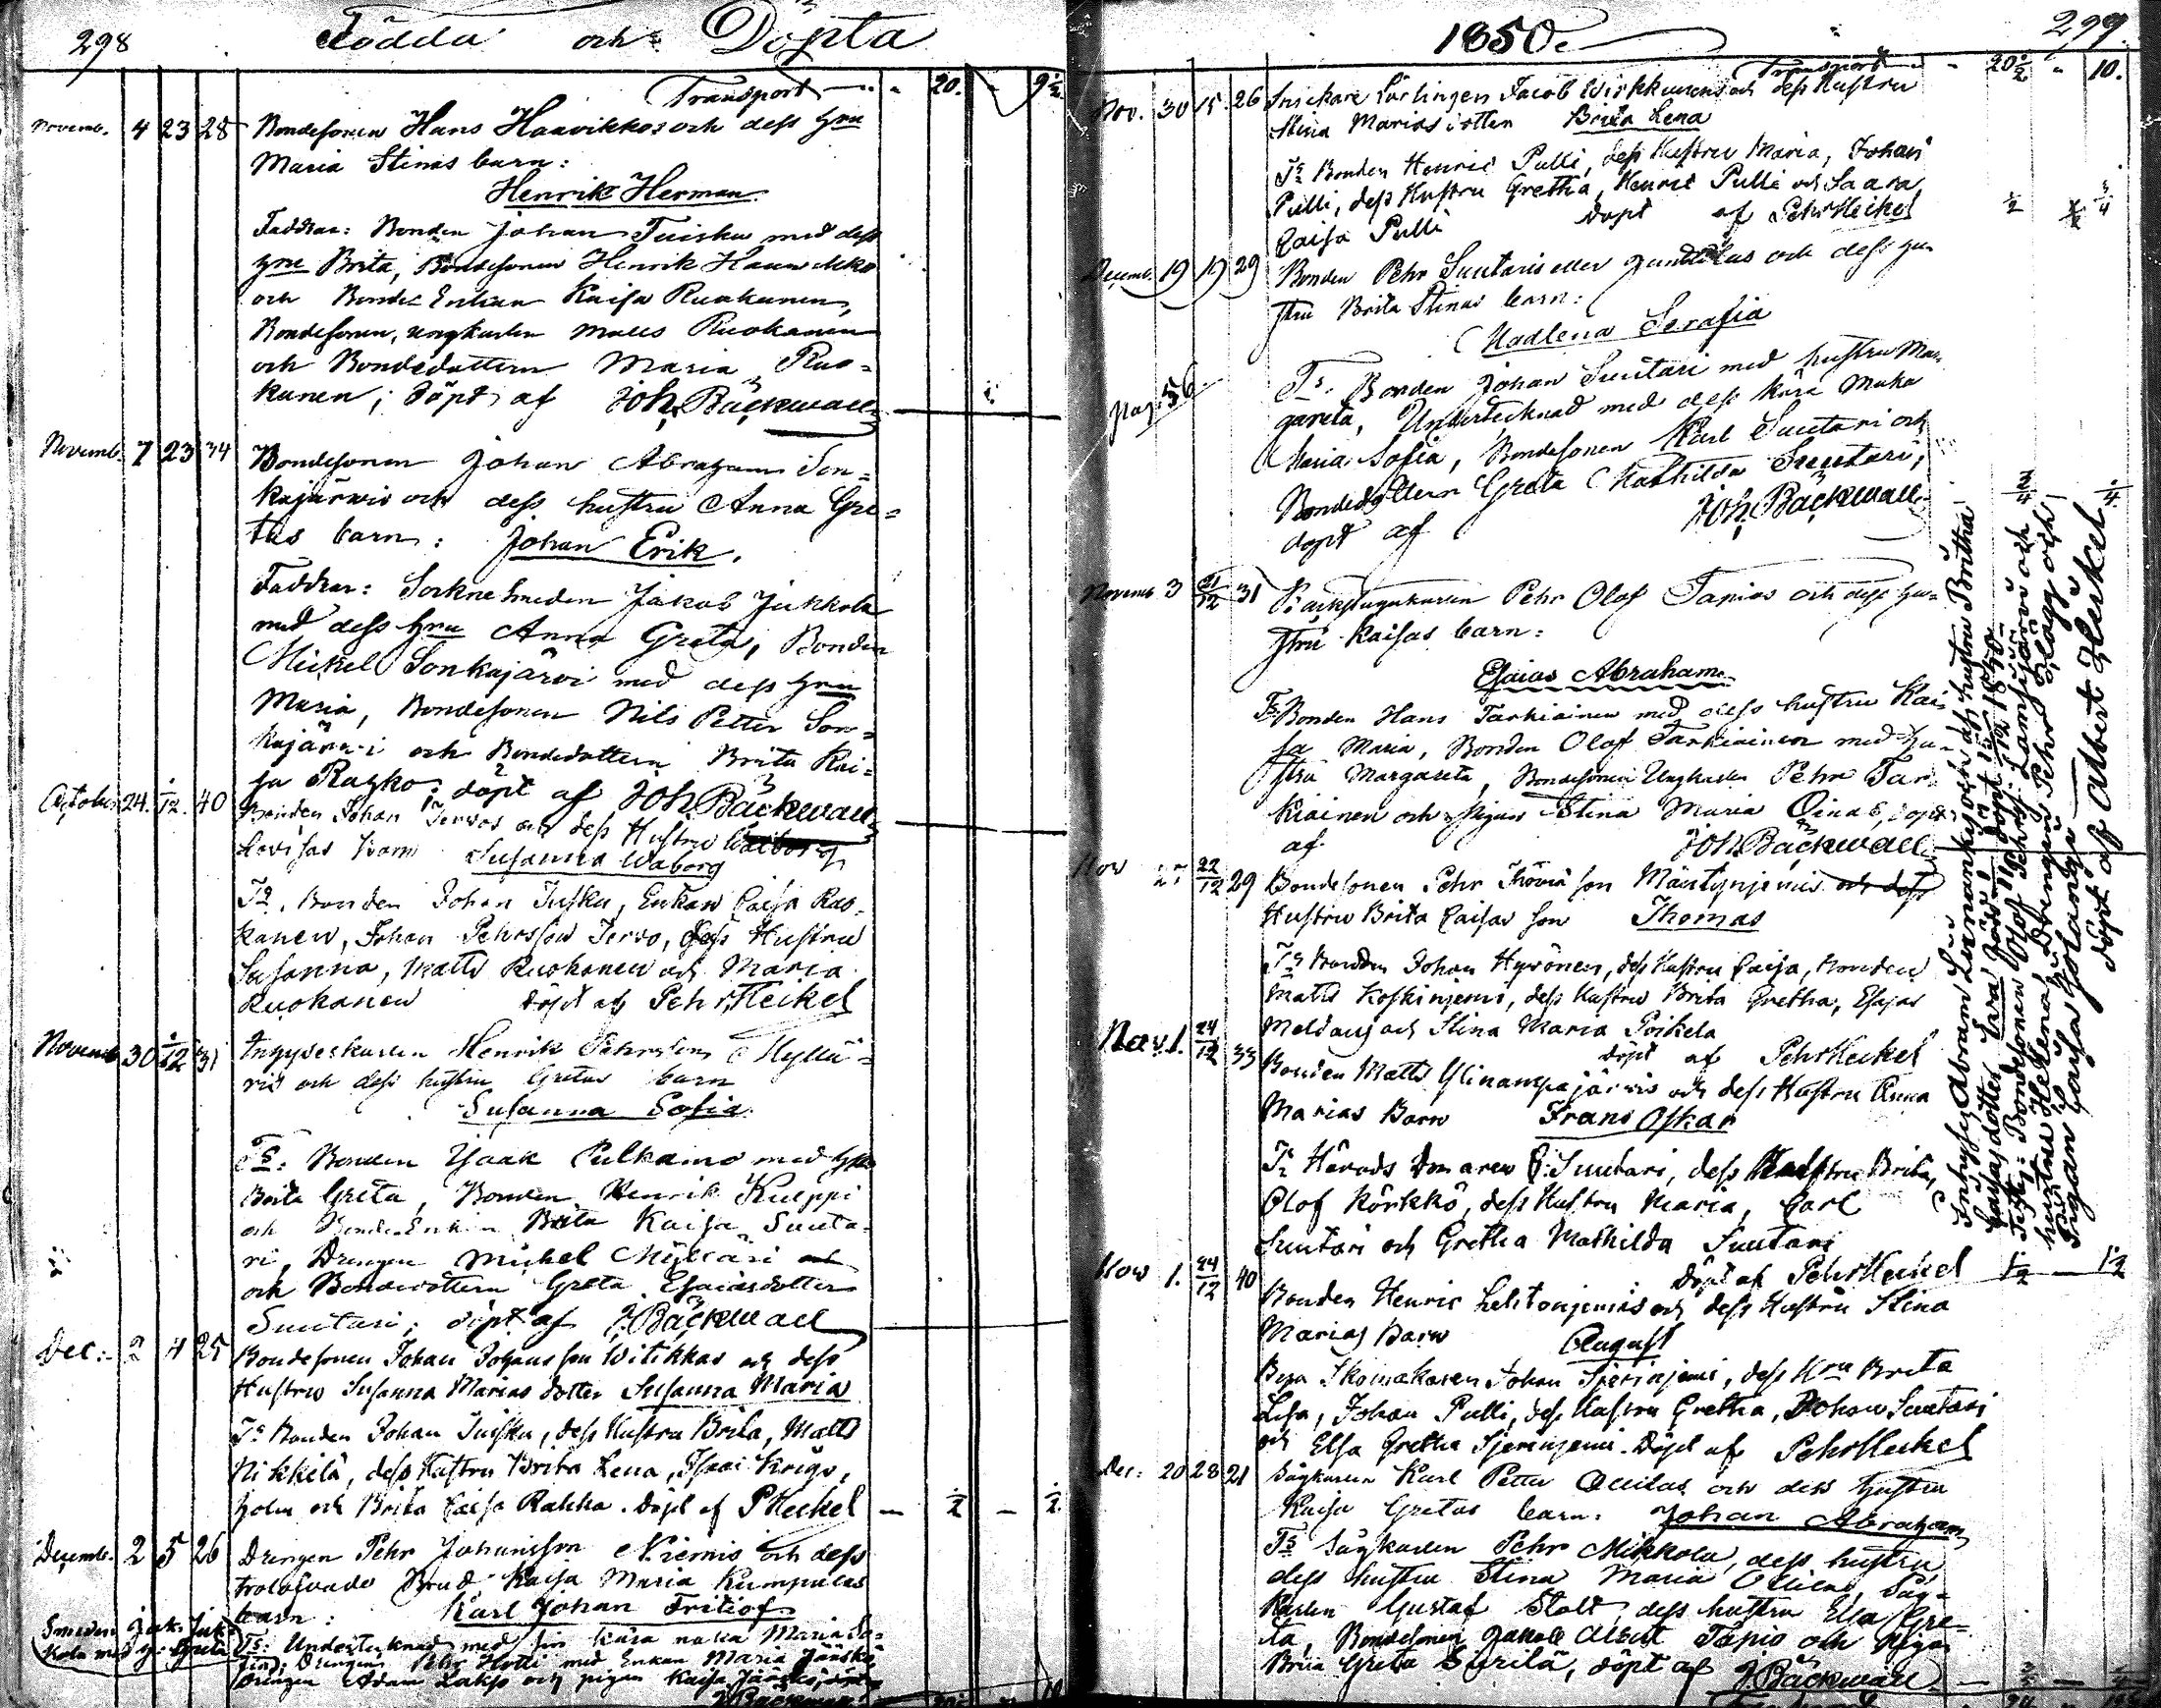 298 Födda och Döpta
Transport 20. 9½
Novemb. 4 23 28 Bondesonen Hans Haavikkos och dess Hru
Maria Stinas barn:
Henrik Herman
Faddrar: Bonden Johan Tuisku med dess
Hru Brita, Bondesonen Henrik Haavikko
och Bonde Enkan Kaisa Ruokanen,
Bondesonen, ungkarlen Matts Ruokanen
och Bondedottern Maria Ruo=
kanen; döpt af Joh. Bäckwall
Novemb. 7 23 34 Bondesonen Johan Abraham Son=
kajärwis och dess hustru Anna Gre=
tas barn: Johan Erik.
Faddrar: Socknesmeden Jakob Jukkola
med dess Hru Anna Greta, Bonden
Mickel Sonkajärvi med dess Hru
Maria, Bondesonen Nils Petter Son=
kajärvi och Bondedottern Brita Kai=
sa Razko. döpt af Joh. Bäckwall
October 24. 1/12. 40 Bonden Johan Tervos och dess Hustru Walborg
Lovisas barn Susanna Waborg
Fr. Bonden Johan Tuisku, Enkan Caisa Ruo=
kanen, Johan Pehrsson Tervo, dess Hustru
Susanna, Matts Ruokanen och Maria
Ruokanen döpt af Pehr Heikel
Novemb. 30 1/12 31 Inhyseskarlen Henrik Pehrsson Myllä=
ris och dess hustru Gretas barn
Susanna Sofia
Fr: Bonden Isaak Pulkamo med Hru
Brita Greta, Bonden Henrik Kueppi
och Bonde Enkan Brita Kaisa Suuta=
ri, Drengen Michel Mylläri och
och Bondedottern Greta Esaiasdotter
Suutari; döpt af J. Bäckwall
Dec: 2 4 25 Bondesonen Johan Johansson Witikkas och dess
Hustru Susanna Marias dotter Susanna Maria
Fr Bonden Johan Tuisku, dess Hustru Brita, Matts
Nikkelä, dess Hustru Brita Lena, Isaac Krigs=
holm och Brita Caisa Rahka. Döpt af P Heikel — ½ — ½.
Decemb. 2 5 26 Drengen Pehr Johansson Niemis och dess
trolofvade Brud Kaisa Maria Kumpulas
barn: Karl Johan Fritiof
Smeden Jak. Juk=
kola med h: Greta
Fr: Undertecknad med sin kära maka Maria So=
fia, Drengen Pehr Hotti med Enkan Maria Jääskö
Drengen Adam Lakso och pigan Kaisa Jääskö, döpt
J Bäckwall
1850. 299
Transport 20½ 10.
Nov. 30 15 26 Snickare Lärlingen Jacob Wirkkunens och dess Hustru
Stina Marias dotter Brita Lena
Fr Bonden Henric Pulli, dess Hustru Maria, Johan
Pulli, dess Hustru Gretha, Henric Pulli och Saara
Caisa Pulli Döpt af Pehr Heikel
Decemb. 19 19 29 Bonden Pehr Suutaris eller Junttilas och dess hu=
stru Brita Stinas barn:
Madlena Serafia
pag. 56.
Fr: Bonden Johan Suutari med hustru Mar=
gareta, Undertecknad med dess kära maka
Maria Sofia, Bondesonen Karl Suutari och
Bondedottern Greta Mathilda Suutari;
döpt af Joh. Bäckwall
Novemb 3 21/12 31 Backstugukarlen Pehr Olof Tapios och dess hu=
stru Kaisas barn:
Esaias Abraham
Fr: Bonden Hans Tarkiainen med dess hustru Kai=
sa Maria, Bonden Olof Tarkiainen med hu=
stru Margareta, Bondesonen Ungkarlen Pehr Tar=
kiainen och pigan Stina Maria Oinas, döpt
af Joh. Bäckwall
Nov 27 22/12 29 Bondesonen Pehr Mäntyniemis och dess
Hustru Brita Caisas son Thomas
Fr Bonden Johan Hyvönen, dess Hustru Caisa, Bonden
Matts Koskiniemi, dess Hustru Brita Gretha, Esajas
Meldaus och Stina Maria Poikela
Döpt af Pehr Heikel
Nov. 1. 24/12 33 Bonden Matts Ylinampajärvis och dess Hustru Anna
Marias Barn Frans Oskar
Fr Härads Domaren E. Suutari, dess Hustru Brita,
Olof Körkkö, dess Hustru Maria, Carl
Suutari och Gretha Mathilda Suutari
Döpt af Pehr Heikel ½ — ½
Nov 1. 24/12 40 Bonden Henric Lehtoniemis och dess Hustru Stina
Marias Barn August
Byn Skomakaren Johan Sjeriniemi, dess Hru Brita
Lisa, Johan Pulli, dess Hustru Gretha, Johan Suutari
och Elsa Gretha Sjeriniemi. Döpt af Pehr Heikel
Dec: 20 28 21 Sågkarlen Karl Petter Ollilas och dess hustru
Kaisa Gretas barn: Johan Abraham
Fr Sågkarlen Pehr Mikkola, dess hustru
dess hustru Stina Maria Ollila, Såg=
karlen Gustaf Stolt, dess hustru Elsa Gre=
ta, Bondesonen Jakob Albert Tapio och pigan
Brita Greta Syrilä, döpt af J. Bäckwall
Inhyses Abram Luonankis och dess hustru Britha
Caisas dotter Sara född döpt 1850
Test: Bondesonen Olof Pehrss. Lamsijärvi och
hustru Helena, Drengen Pehr Slagg och
Pigan Caisa Holangi
döpt af Albert Heikel.